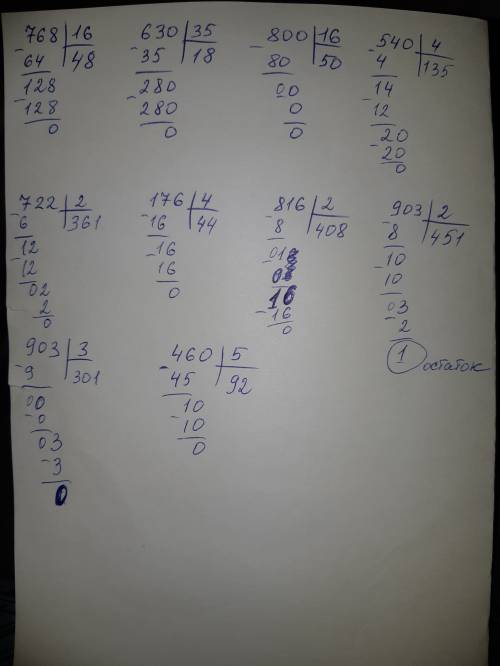 768 | 16
- 64 | 48
128
- 128
0
630 | 35
- 35 | 18
280
- 280
0
800 | 16
- 80 | 50
00
0
0
540 | 4
- 4 | 135
14
12
20
- 20
0
722 | 2
- 6 | 361
12
- 12
02
2
0
176 | 4
- 16 | 44
16
- 16
0
816 | 2
- 8 | 408
16
- 16
0
903 | 2
- 8 | 451
10
- 10
03
- 2
1 остаток
903 | 3
- 9 | 301
00
- 0
03
- 3
0
460 | 5
- 45 | 92
10
- 10
0